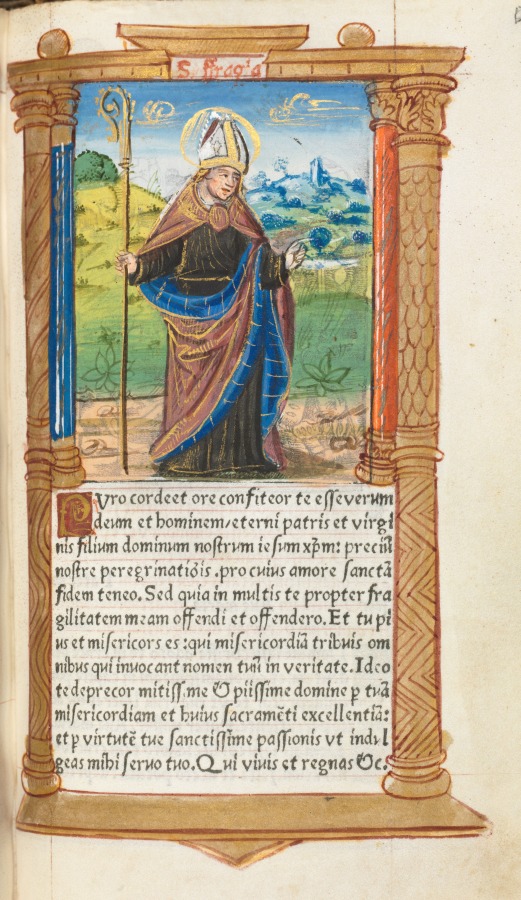 Puro corde et ore confiteor te esse verum
deum et hominem/eterni patris et virgi
nis filium dominum nostrum iesum xp̄m: preciū
nostre peregrinatiōis .pro cuius amore sanctā
fidem teneo. Sed quia in multis te propter fra
gilitatem meam offendi et offendero. Et tu pi
us et misericors es :qui misericordiā tribuis om
nibus qui inuocant nomen tuū in veritate. Ideo
te deprecor mitiss.me & piissime domine ꝑ tuā
misericordiam et huius sacramēti excellentiā:
et ꝑ virtutē tue sanctissime passionis vt indul
geas mihi seruo tuo. Qui viuis et regnas &c.